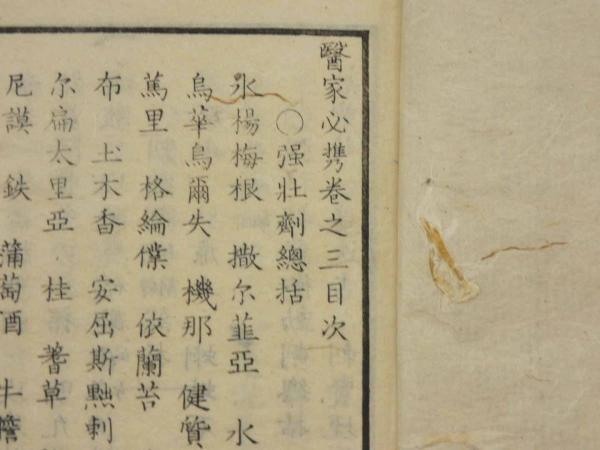 醫家必携卷之三目次
〇强壯劑總括
氷楊梅根 撒尔菲亞 水
烏華烏爾失 機那 健質
篤里 格綸僕 依蘭苔
布 土木香 安屈斯點剌
尔扁太里亞 桂 蓍草
尼謨 鉄 蒲萄酒 牛膽